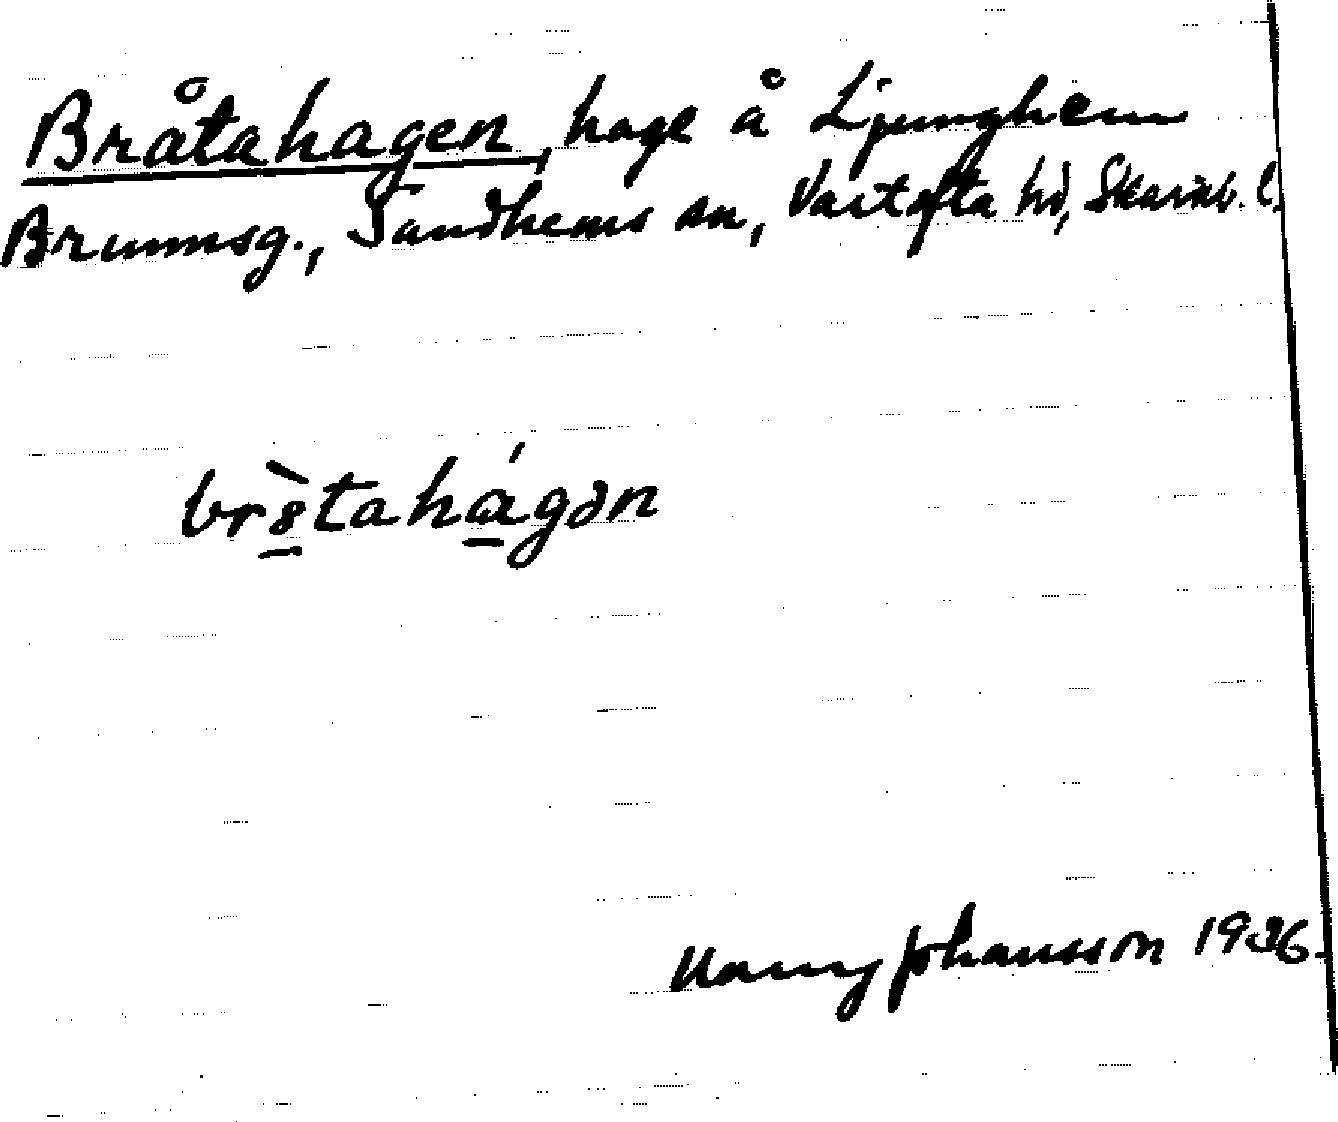 Bråtahagen, hage å Ljunghem
Brunnsg., Sandhems sn, Vartofta hd, Skarab. l.
br8̀tahágən
Nanny Johansson 1936.